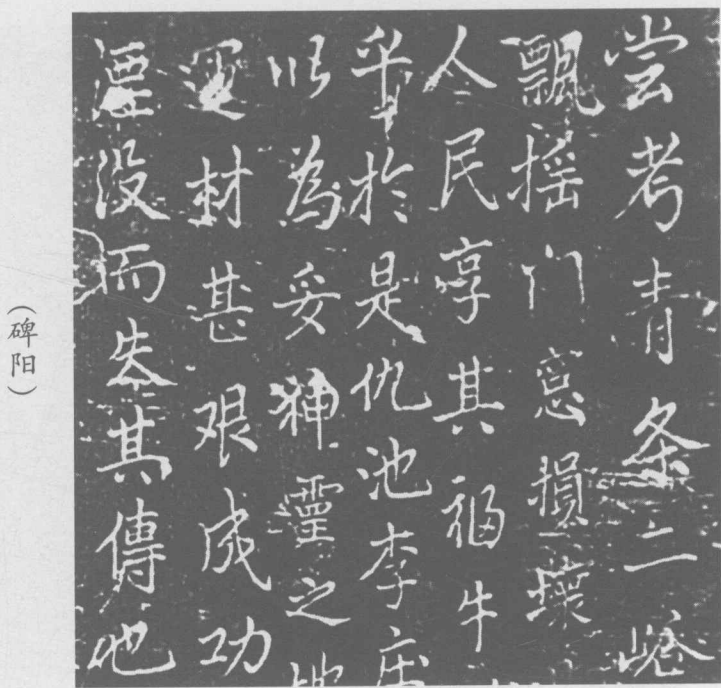 尝考青条二峪
飄摇门窓損壞
人民享其福牛
平於是仇池李庄
以為妥神靈之地
運材甚艰成功
湮没而失其傳也
（碑阳）